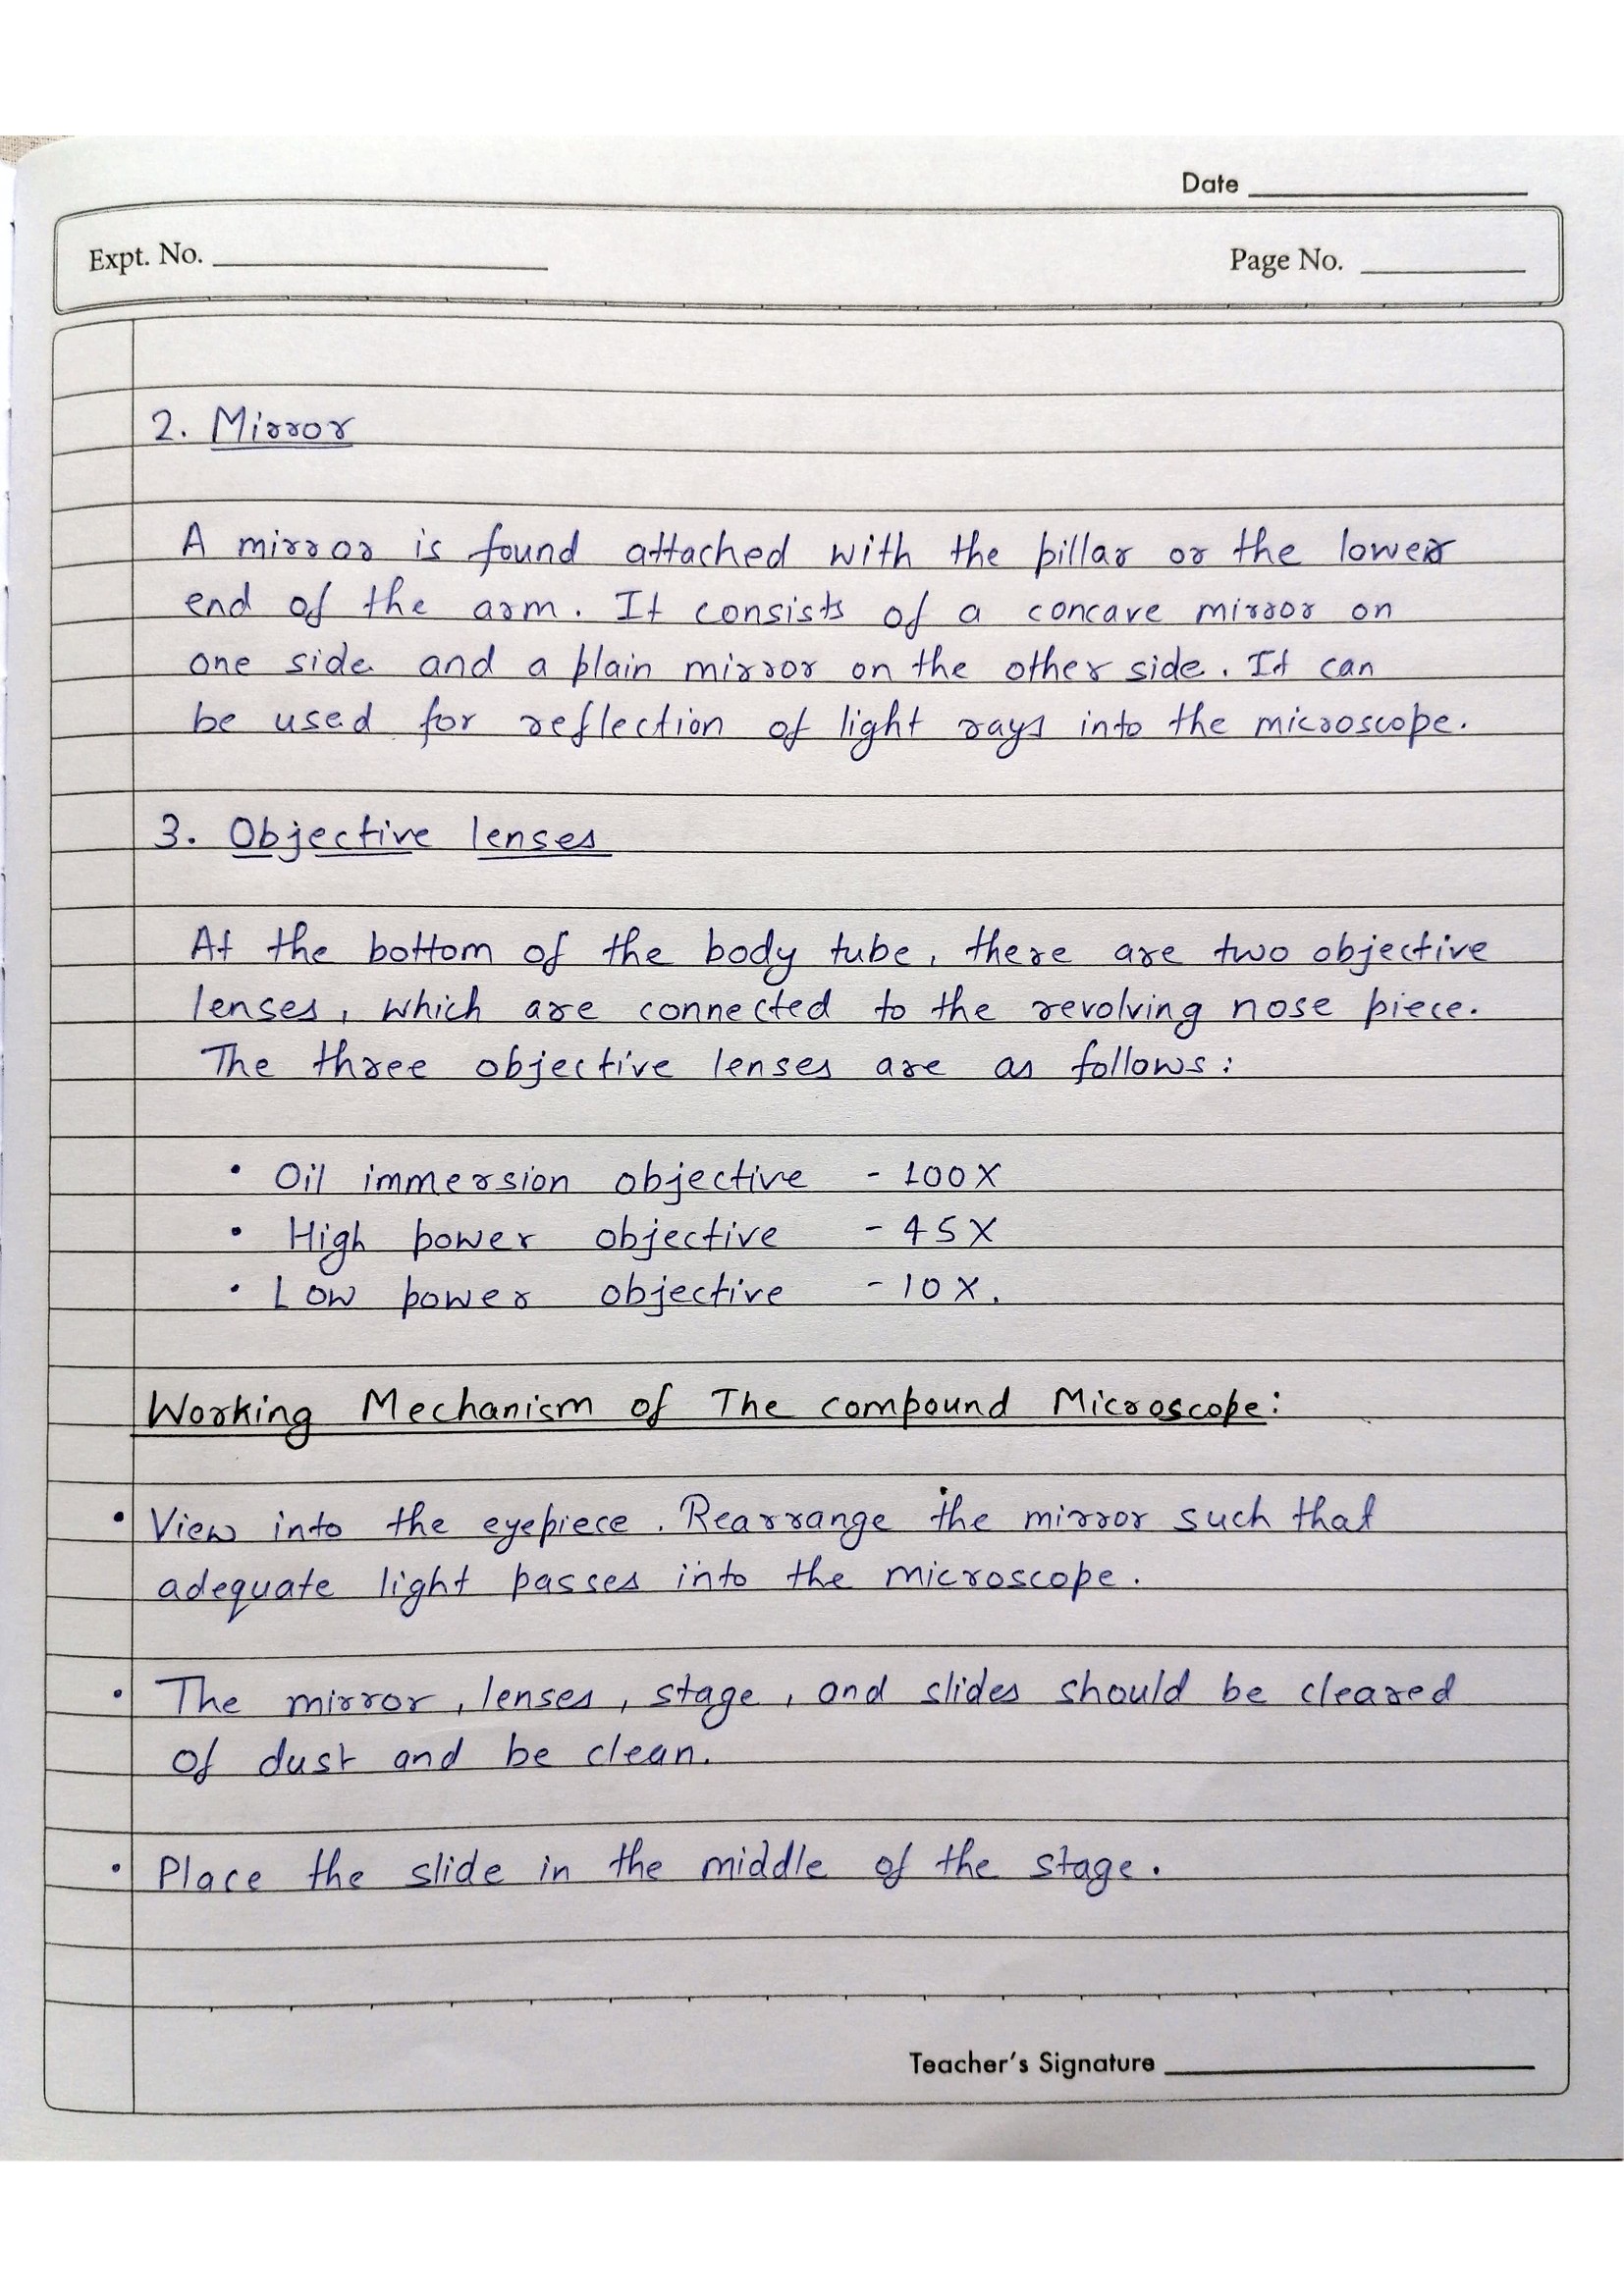 Date
Expt. No.
Page No.
2. Mirror
A mirror is found attached with the pillar or the lower
end of the arm. It consists of a concave mirror on
one side and a plain mirror on the other side. It can
be used for reflection of light rays into the microscope.
3. Objective lenses
At the bottom of the body tube, there are two objective
lenses, which are connected to the revolving nose piece.
The three objective lenses are as follows:
• Oil immersion objective - 100X
• High power objective - 45X
• Low power objective - 10X.
Working Mechanism of The compound Microscope:
• View into the eyepiece. Rearrange the mirror such that
adequate light passes into the microscope.
• The mirror, lenses, stage, and slides should be cleared
of dust and be clean.
• Place the slide in the middle of the stage.
Teacher's Signature